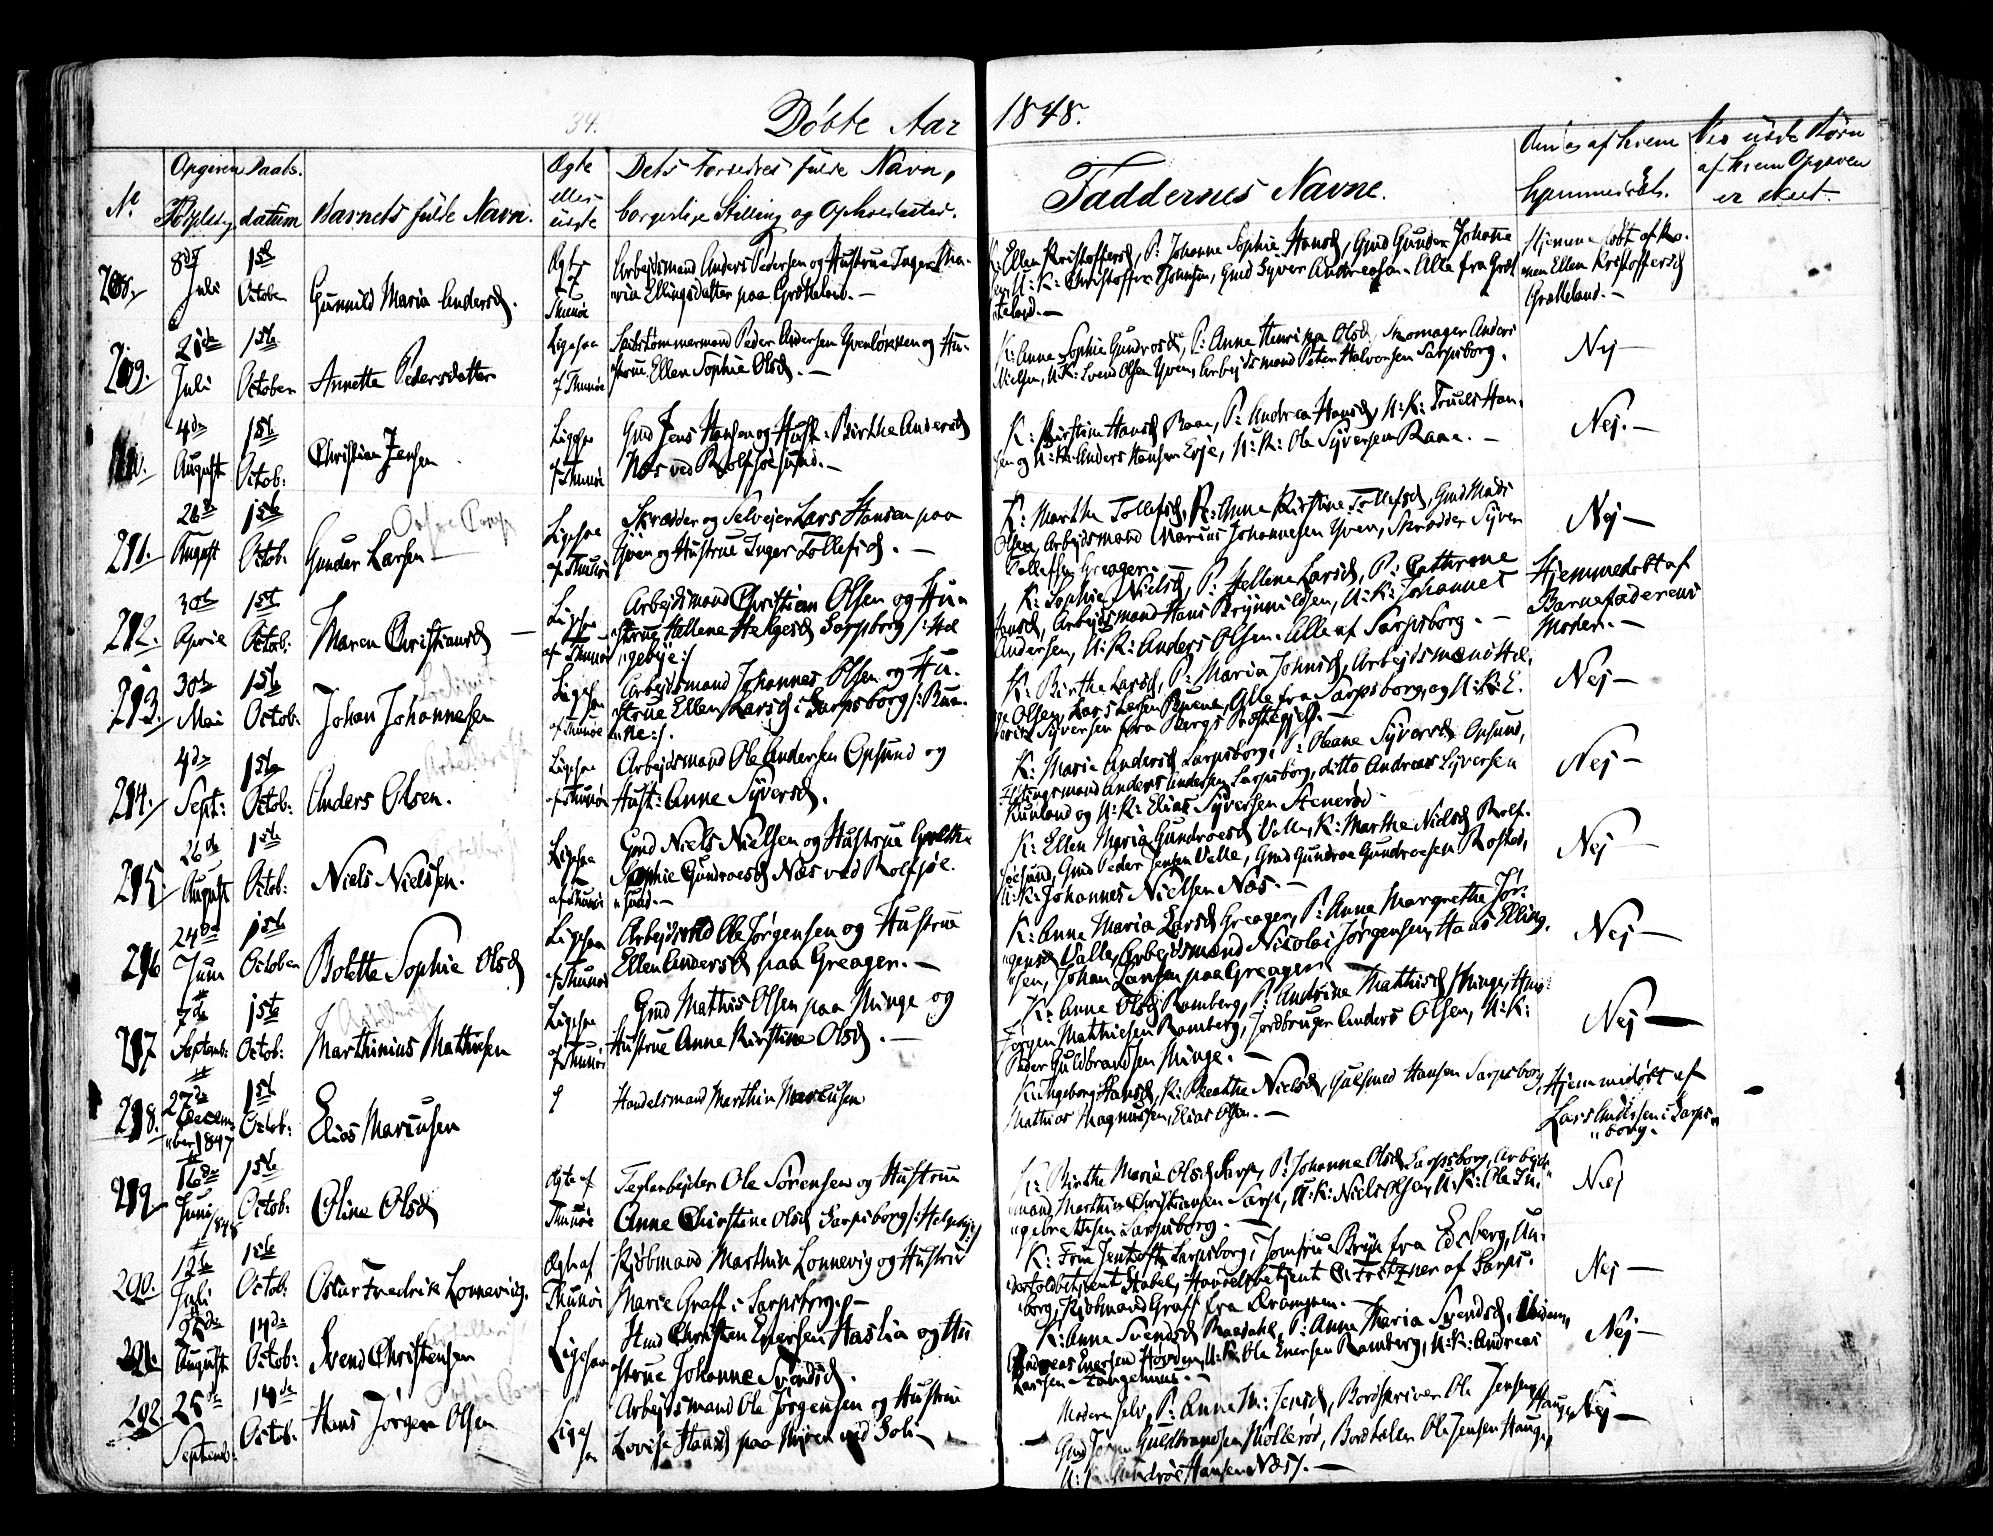 34.
Døbte Aar 1848.
No
Opgiven Fødselsdag
Daabs. datum
Barnets fulde Navn.
Ægte eller uægte
Dets Forældres fulde Navn, borgerlige Stilling og Opholdssted.
Faddernes Navne.
Om og af hvem hjemmedøbt.
Ved uægte Børn af hvem Opgaven er skeet.
8de Juli
1ste October
Gunnild Maria Andersd.
Arbeidsmand Anders Pedersen og Hustrue Inger Ma-
ria Ellingsdatter paa Grotteland. —
K: Ellen Kristoffersd, P: Johanne Sophie Hansd, Gmd Gunder Johanne
sen, U: K: Christoffer Johnsen, Gmd Syver Andreasen. Alle fra Grot
teland. —
Hjemmedøbt af Ko-
nen Ellen Kristoffersd
Grotteland. —
209.
21de Juli
1ste October
Annette Pedersdatter
Ligesaa af Thunøe
Skibstømmermand Peder Andersen Yvenløkken og Hu-
strue Ellen Sophie Olsd. —
K: Anne Sophie Gundrosd, P: Anne Henrikka Olsd, Skomager Anders
Nielsen, U: K: Svend Olsen Yven, Arbejdsmand Peter Halvorsen Sarpsborg.
Nej —
4de August
1ste Octob:
Christian Jensen
Ligesaa af Thunøe
Gmd Jens Hansen og Hust: Birthe Andersd
Næs ved Rolfsøesund. —
K: Kirstine Hansd Raae, P: Andrea Hansd, U: K: Truels Han-
sen og U: K: Anders Hansen Evje, U: K: Ole Syversen Raae. —
Nej. —
211.
26de August
1ste Octob:
Gunder Larsen —
Ligesaa af Thunøe
Skræder og Selvejer Lars Hansen paa
Yven og Hustrue Inger Tollefsd. —
K: Marthe Tollefsd, P: Anne Kirstine Tollefsd, Gmd Mads
Olsen, Arbejdsmand Marius Johannesen Yven, Skrædder Syver
Tollefsen Greager. —
Nej —
212.
30te April
1ste Octob:
Maren Christiansd —
Ligesaa af Thunøe
Arbejdsmand Christian Olsen og Hu-
strue Hellene Helgesd Sarpsborg /: Hel
gebye :/
K: Sophie Nielsd, P: Hellene Larsd, P: Cathrine
Hansd, Arbejdsmand Hans Brynnildsen, U: K: Johannes
Andersen, U: K: Anders Olsen. Alle af Sarpsborg. —
Hjemmedøbt af
Barnefaderens
Moder. —
213.
30te Mai
1ste Octob:
Johan Johannesen
Ligesaa af Thunøe
Arbejdsmand Johannes Olsen og Hu-
strue Ellen Larsd i Sarpsborg /: Rue-
ne :/.
K: Birthe Larsd, P: Maria Johnsd, Arbejdsmænd Hel-
ge Olsen, Lars Larsen Ruene, Alle fra Sarpsborg, og U: K: E.
Syversen fra Bergs Præstegjeld. —
Nej —
214.
4de Sept:
1ste Octob:
Anders Olsen.
Ligesaa af Thunøe
Arbejdsmand Ole Andersen Opsund og
Hust: Anne Syversd.
K: Marie Andersd Sarpsborg, P: Oleane Syversd Opsund,
Indtingsmand Anders Andersen Sarpsborg, ditto Andreas Syversen
Kurland og U: K: Elias Syversen Stenerød.
Nej —
215.
26de August
1ste Octob:
Niels Nielsen.
Ligesaa af Thunøe
Gmd Niels Nielsen og Hustrue Grethe
Sophie Gundroesd Næs ved Rolfsøe-
sund. —
K: Ellen Maria Gundroesd Valle, K: Marthe Nielsd Rolf-
søesund, Gmd Peder Jensen Valle, Gmd Gundroe Gundroesen Rostad,
U: K: Johannes Nielsen Næs. —
Nej —
216
24de Juni
1ste October
Bolette Sophie Olsd
Ligesaa af Thunøe
Arbejdsmd Ole Jørgensen og Hustrue
Ellen Andersd paa Greager. —
K: Anne Maria Larsd Greager, P: Anne Margrethe Jør-
gensd Valle, Arbejdsmand Nikolai Jørgensen, Hans Elling-
sen, Johan Larsen paa Greager.
Nej —
217
7de Septemb:
1ste Octob:
Marthinius Mathiesen
Ligesaa af Thunøe
Gmd Mathis Olsen paa Minge og
Hustrue Anne Kirstine Olsd. —
K: Anne Olsd Ramberg, P: Andrine Mathisd Minge, Hmd
Jørgen Matthiesen Ramberg, Jordbruger Anders Olsen, U: K:
Peder Guldbrandsen Minge. —
Nej —
218.
27de Decem-
ber 1847
1ste Octob:
Elias Marcusen
Handelsmand Marthin Marcusen
K: Ingeborg Hansd, K: Beathe Nielsd, Gulsmed Hansen Sarpsborg,
Mathias Magnussen, Elias Olsen. —
Hjemmedøbt af
Lars Andersen i Sarps-
borg. —
219
16de Juni 1848
1ste Octob:
Oline Olsd
Ægte af Thunøe
Teglarbejder Ole Sørensen og Hustrue
Anne Chirstine Olsd Sarpsborg /: Helgebye :/
K: Birthe Marie Olsd Sarp, P: Johanne Olsd Sarpsborg, Arbejds-
mand Marthin Christiansen Sarp, U: K: Niels Olsen, U: K: Ole In-
gebretsen Sarpsborg. —
Nej
290.
12te Juli
1ste Octob:
Oscar Fredrik Lonnevig.
Ægte af Thunøe
Kjøbmand Marthin Lonnevig og Hustrue
Marie Graff i Sarpsborg. —
K: Fru Jentoft Sarpsborg, Jomfru Bryn fra Edsberg, Un-
dertoldbetjent Stabel, Handelsbetjent C. Fritzner af Sarps-
borg, Kjøbmand Graff fra Drammen. —
Nej —
291.
August
14de Octob:
Svend Christensen
Ligesaa
Hmd Christen Enersen Haslia og Hu
strue Johanne Svendsd.
K: Anne Svendsd Raadahl, P: Anne Maria Svendsd, ibidem,
Andreas Enersen Hovden, U: K: Ole Enersen Ramberg, U: K: Andreas
Larsen Stangemus. —
Nej —
292.
25de Septemb:
14de Octob:
Hans Jørgen Olsen
Ligesaa
Arbejdsmand Ole Jørgensen og Hustrue
Lovise Hansd paa Myren ved Soli —
Moderen selv, P: Anne M: Jensd, Bordskriver Ole Jensen Hauge,
Gmd Jørgen Guldbrandsen Møllerød, Bordtæller Ole Jensen Hauge,
U: K: Gundroe Hansen Næs. —
Nej —